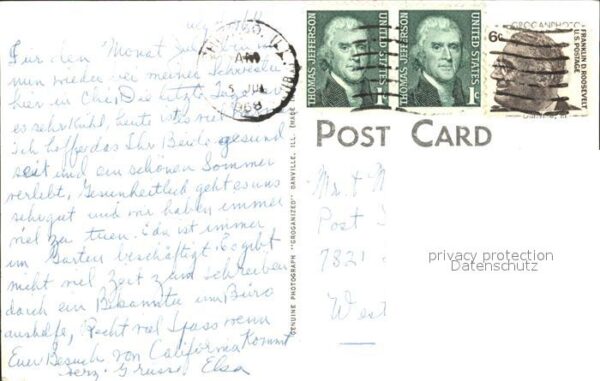 Für den Monat Juli bin ich
nun wieder bei meiner Schwester
hier in Chic. Die letzte
es sehr kühl, heute ist es
ich hoffe das Ihr Beide gesund
seit und ein schönen Sommer
verlebt, Gesundheitlich geht es uns
sehr gut und wir haben immer
viel zu tuen. Eda ist immer
im Garten beschäftigt. Es gibt
nicht viel Zeit zum schreiben
durch ein Bekannte im Büro
aushelfe, Recht viel Spass wenn
Euer Besuch von California kommt
Herz. Grüsse Elsa
CHICAGO, ILL.
AM
5 JUL
1968
THOMAS JEFFERSON
UNITED STATES
1c
THOMAS JEFFERSON
UNITED STATES
1c
6c
U.S. POSTAGE
FRANKLIN D. ROOSEVELT
GENUINE PHOTOGRAPH "GROGANIZED" DANVILLE, ILL. (MADE
GROGANPHOTO
POST CARD
Mr. &
Post
7821
West
privacy protection
Datenschutz